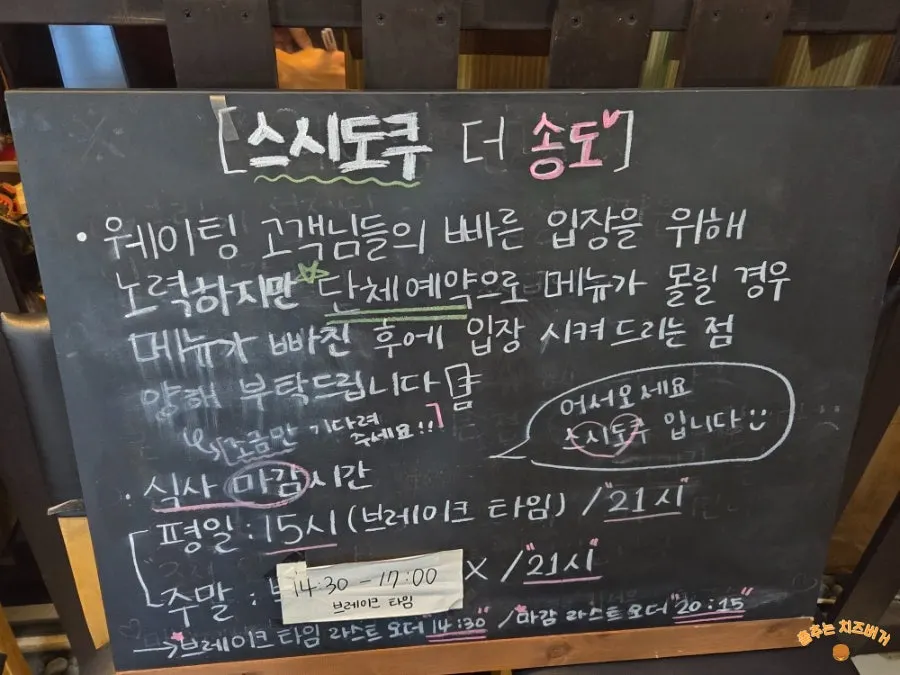 [스시도쿠 더 송도]
• 웨이팅 고객님들의 빠른 입장을 위해
노력하지만 단체예약으로 메뉴가 몰릴 경우
메뉴가 빠진 후에 입장 시켜드리는 점
양해 부탁드립니다
조금만 기다려
주세요!!
어서오세요
스시도쿠 입니다
• 식사 마감시간
평일 : 15시 (브레이크 타임) / "21시"
주말 : X / "21시"
14:30 - 17:00
브레이크 타임
→ 브레이크타임 라스트오더 14:30" / 마감 라스트 오더 "20:15"
춤추는 치즈버거